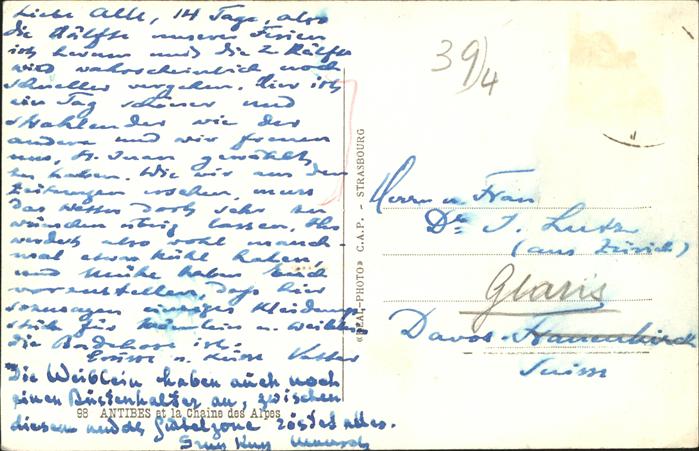 Liebe Alle, 14 Tage, also
die Hälfte unserer Ferien
ist herum und die 2. Hälfte
wird wahrscheinlich noch
schneller vergehen. Hier ist
ein Tag schöner und
strahlender wie der
andere und wir freuen
uns, St. Juan gewählt
zu haben. Wie wir aus den
Zeitungen ersehen, muss
das Wetter dort sehr zu
wünschen übrig lassen. Ihr
werdet also wohl manch-
mal etwas kühl haben,
und Mühe haben Euch
vorzustellen, dass hier
sozusagen einziges Kleidungs-
stück für Männlein u. Weiblein
die Badehose ist.
Grüsse u. Küsse Vater
Die Weiblein haben auch noch
einen Büstenhalter an, zwischen
diesem und der Gürtelzone röstet alles.
Gruss Kuss
98 ANTIBES et la Chaîne des Alpes
«REAL-PHOTO» C.A.P. - STRASBOURG
39/4
Herrn u. Frau
Dr. J. Lutz
(aus Zürich)
Glaris
Davos-Frauenkirch
Suisse